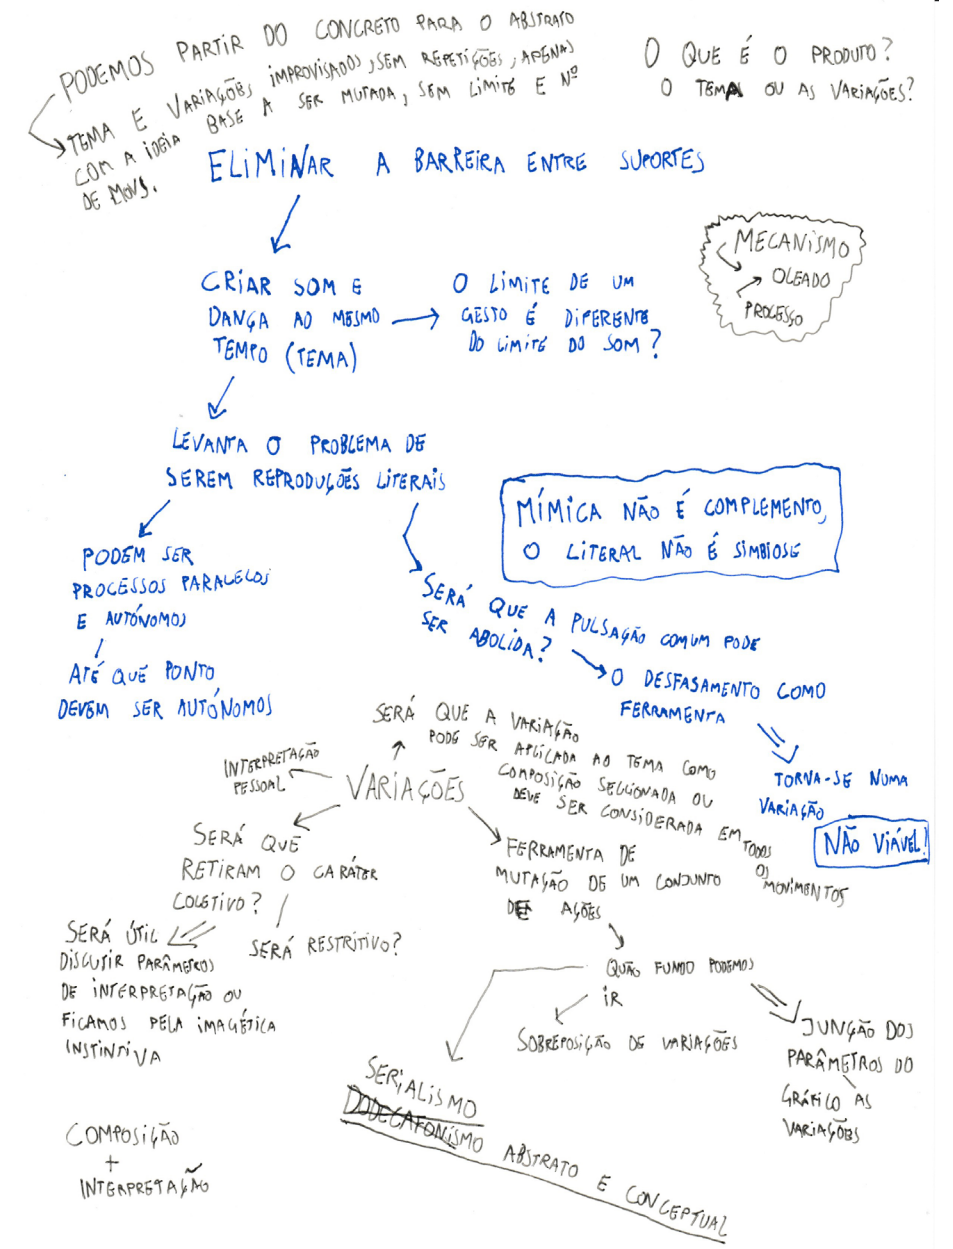 PODEMOS PARTIR DO CONCRETO PARA O ABSTRATO
TEMA E VARIAÇÕES IMPROVISADOS, SEM REPETIÇÕES, APENAS
COM A IDEIA BASE A SER MUTADA, SEM LIMITE E Nº
DE MOVS.
O QUE É O PRODUTO?
O TEMA OU AS VARIAÇÕES?
ELIMINAR A BARREIRA ENTRE SUPORTES
MECANISMO
OLEADO
PROCESSO
CRIAR SOM E
DANÇA AO MESMO
TEMPO (TEMA)
O LIMITE DE UM
GESTO É DIFERENTE
DO LIMITE DO SOM?
LEVANTA O PROBLEMA DE
SEREM REPRODUÇÕES LITERAIS
MÍMICA NÃO É COMPLEMENTO,
O LITERAL NÃO É SIMBIOSE
PODEM SER
PROCESSOS PARALELOS
E AUTÓNOMOS
ATÉ QUE PONTO
DEVEM SER AUTÓNOMOS
SERÁ QUE A PULSAÇÃO COMUM PODE
SER ABOLIDA?
O DESFASAMENTO COMO
FERRAMENTA
TORNA-SE NUMA
VARIAÇÃO
NÃO VIÁVEL!
VARIAÇÕES
INTERPRETAÇÃO
PESSOAL
SERÁ QUE A VARIAÇÃO
PODE SER APLICADA AO TEMA COMO
COMPOSIÇÃO SECCIONADA OU
DEVE SER CONSIDERADA EM TODOS
OS
MOVIMENTOS
SERÁ QUE
RETIRAM O CARÁTER
COLETIVO?
SERÁ RESTRITIVO?
SERÁ ÚTIL
DISCUTIR PARÂMETROS
DE INTERPRETAÇÃO OU
FICAMOS PELA IMAGÉTICA
INSTINTIVA
FERRAMENTA DE
MUTAÇÃO DE UM CONJUNTO
DE AÇÕES
QUÃO FUNDO PODEMOS
IR
SOBREPOSIÇÃO DE VARIAÇÕES
JUNÇÃO DOS
PARÂMETROS DO
GRÁFICO AS
VARIAÇÕES
SERIALISMO
DODECAFONISMO ABSTRATO E CONCEPTUAL
COMPOSIÇÃO
+
INTERPRETAÇÃO